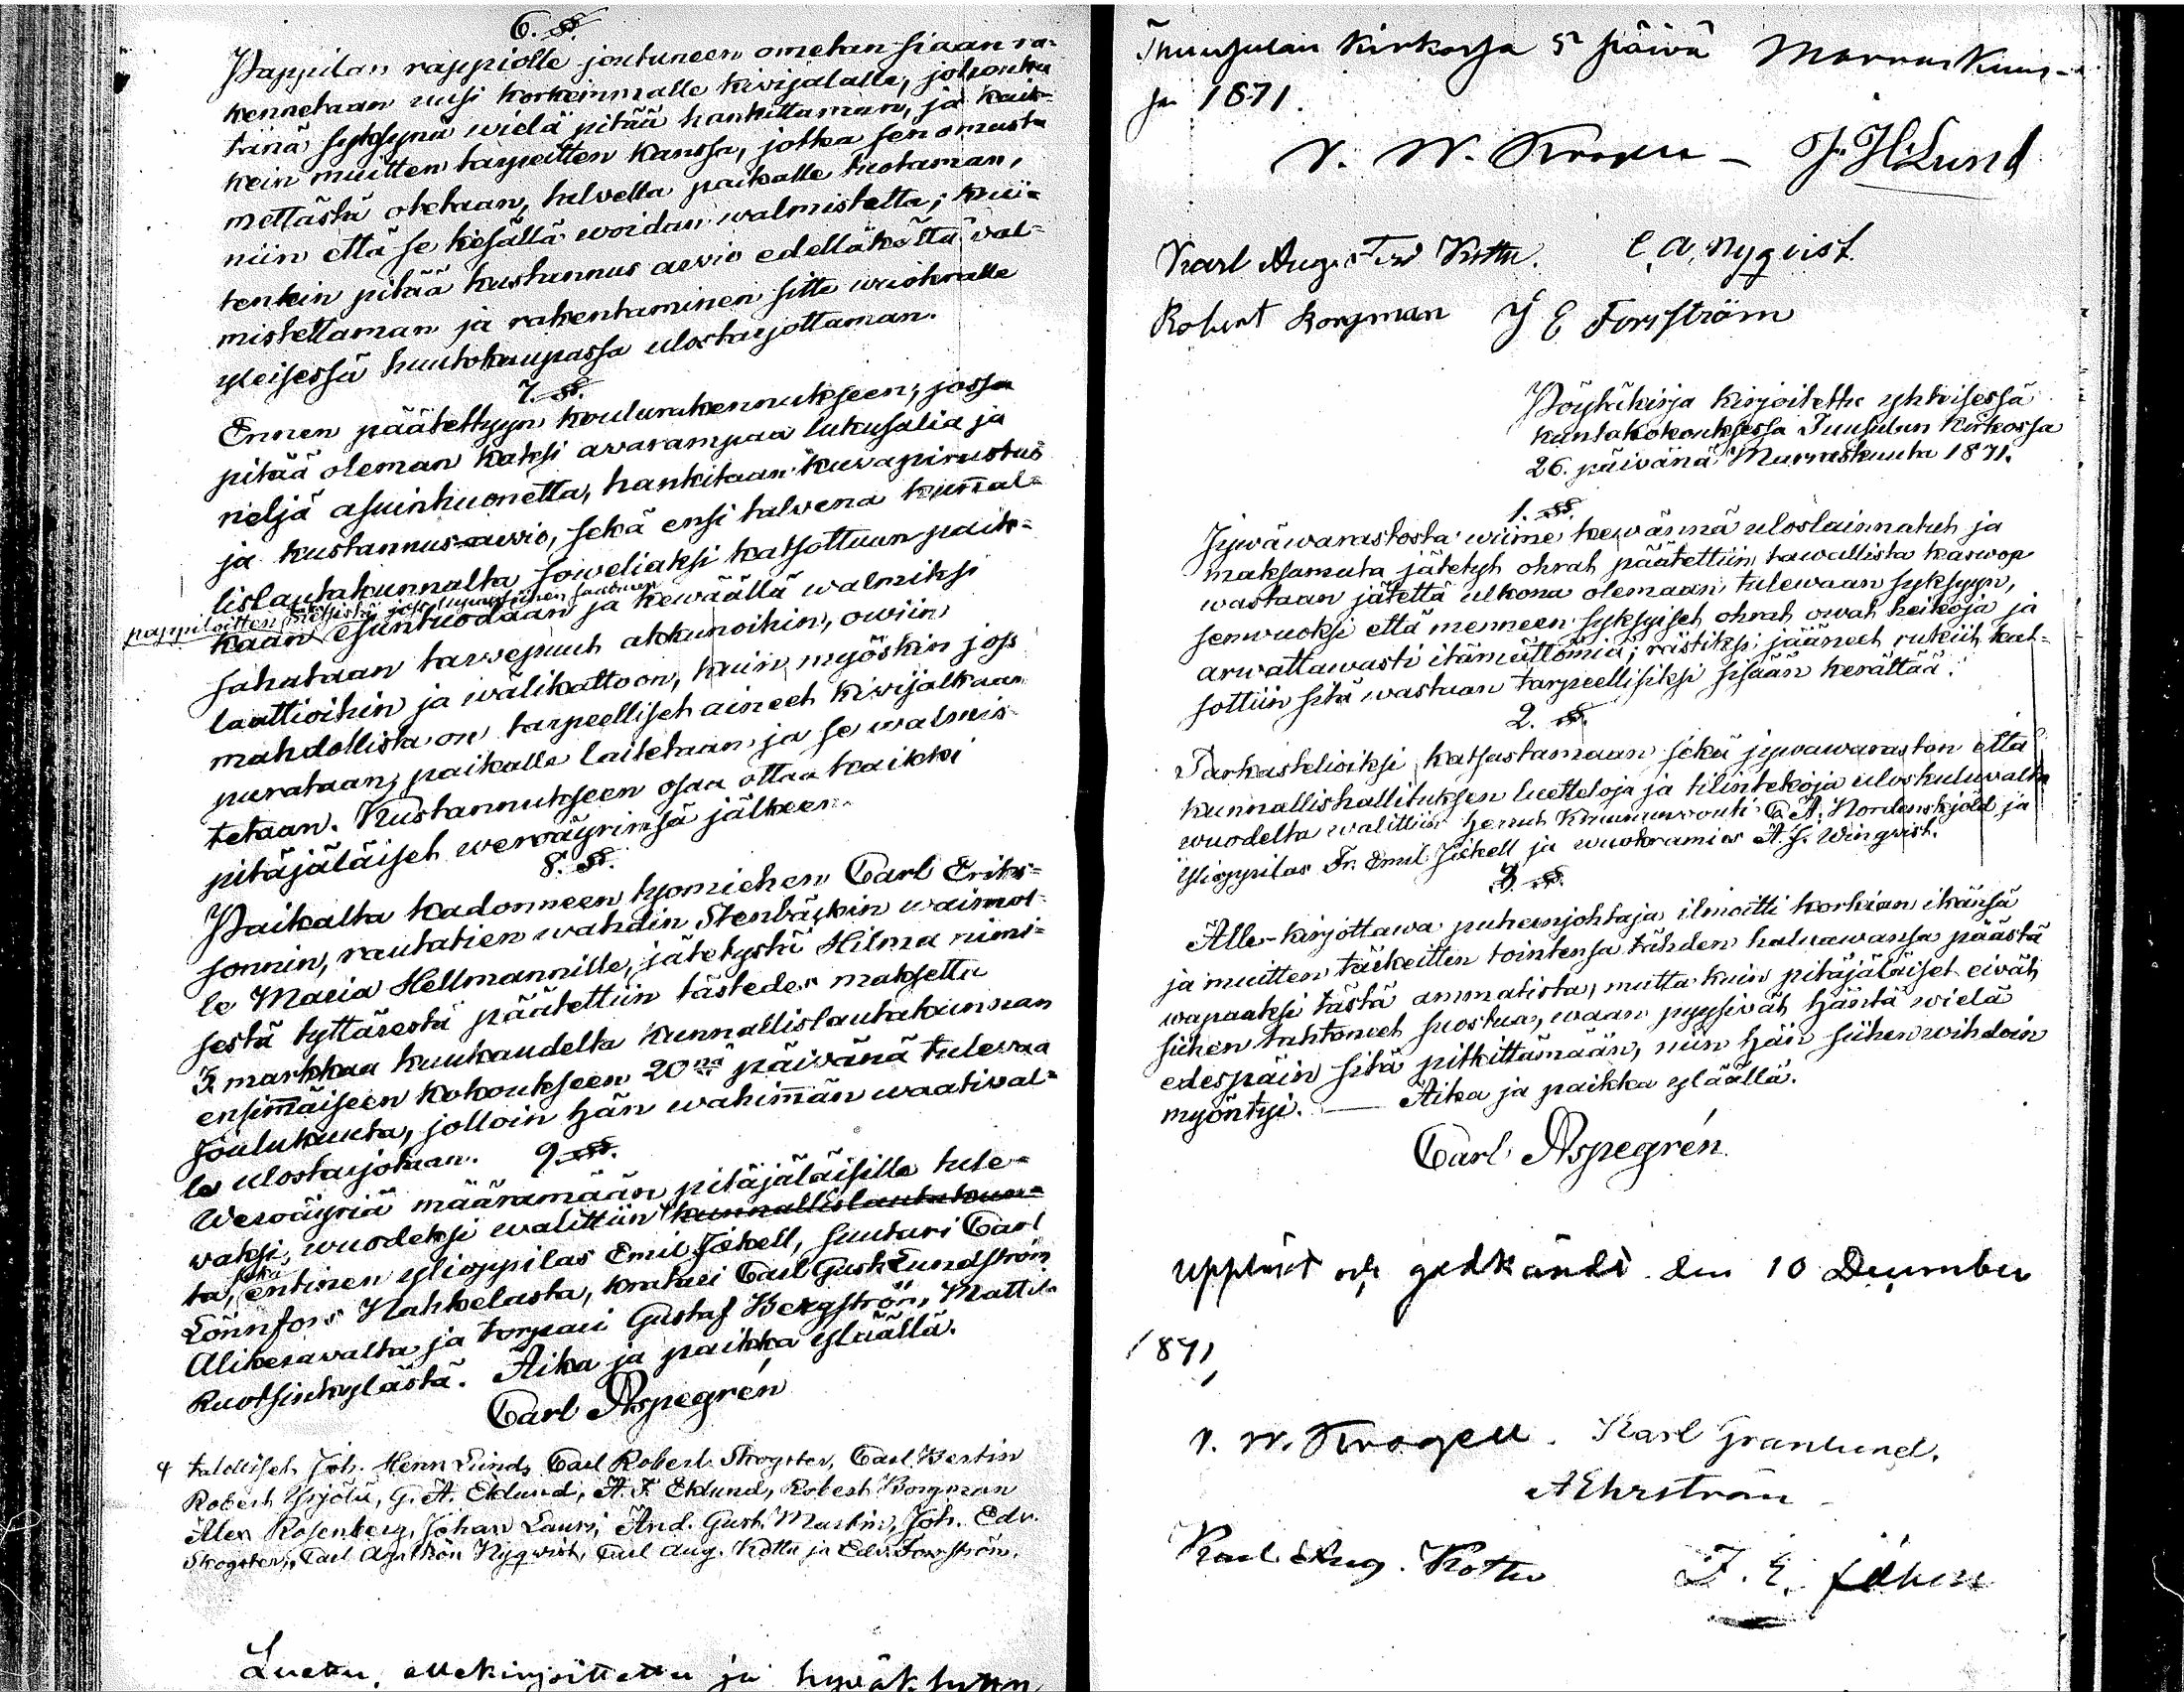 6. §.
Pappilan rappiolle joutuneen ometan siaan ra-
kennetaan uusi korkeimmalle kivijalalle, johonka
tänä syksynä wielä pitää hankittaman, ja kaik-
kein muitten tarpeitten kanssa, jotka sen omasta
mettästä otetaan, talvella paikalle tuotaman,
niin että se kesällä woidan walmistetta; kui-
tenkin pitää kustannus arvio edelläkättä val-
mistettaman ja rakentaminen sitte wuokralle
yleisessä huutokaupassa ulostarjottaman.
7. §.
Ennen päätettyyn koulurakennukseen, jossa
pitää oleman kaksi avarampaa lukusalia ja
neljä asuinhuonetta, hankitaan kuvapiirustus
ja kustannus-arvio, sekä ensi talvena kun̄al-
lislautakunnalta soweliaksi katsottuun paik-
pappiloitten metsistä jos siihen saadaan
kaan esuntuodaan ja kewäällä walmiksi
sahataan tarvepuut akkunoihin, owiin,
laattioihin ja wälikattoon, kuin myöskin jos
mahdollista on tarpeelliset aineet kivijalkaan
purataan, paikalle laitetaan ja se walmis-
tetaan. Kustannukseen osaa ottaa kaikki
pitäjäläiset weroäyrinsä jälkeen.
8. §.
Paikalta kadonneen työmiehen Carl Eriks-
sonnin, rautatien wahdin Stenbäckin waimol-
le Maria Hellmannille, jätetystä Hilma nimi-
sestä tyttärestä päätettiin tästedes maksetta
5 markkaa kuukaudelta kunnallislautakunnan
ensim̄äiseen kokoukseen 20nä päivänä tulevaa
Joulukuuta, jolloin hän wahim̄än waatival-
le ulostarjotaan. 9. §.
Weroäyriä määrämään pitäjäläisille tule-
vaksi wuodeksi walittiin kunnallislautakun-
ta, sekä entinen ylioppilas Emil Jäkell, suutari Carl
Lönnfors Nahkelasta, kratari Carl Gust Lundström
Alikeravalta ja torpari Gustaf Bergström, Mattila
Ruotsinkylästä. Aika ja paikka yläällä.
Carl Aspegrén
4 taldliset Joh. Henr Lund, Carl Robert Skogster, Carl Bertin
Robert Yrjölä, G. A. Eklund, A. F. Eklund, Robert Borgman
Alex Rosenberg, Johan Lauri, And. Gust. Martin, Joh. Edv.
Skogster, Carl Nyqvist, Carl Aug. Kottu ja Edv. Forsström.
Luettu, allekirjoitettu ja hyväksyttu
Tuusulan Kirkossa 5 päivä Marraskuus-
sa 1871.
V. W. Krogell - J. H. Lund
Karl August Kottu. C. A. Nyqvist
Robert Borgman J E Forsström
Pöytäkirja kirjoitettu yhteisessä
kuntakokouksessa Tuusulan Kirkossa
26. päivänä Marraskuuta 1871.
1. §.
Jywäwarastosta wiime kewännä uloslainnatut ja
maksamata jätetyt ohrat päätettiin tawallista kaswoa
wastaan jätettä ulkona olemaan tulewaan syksyyn,
senwuoksi että menneen syksyiset ohrat owat heikoja ja
arwattawasti itämättömiä; rästiksi jääneet rukiit kat-
sottiin sitä wastaan tarpeellisiksi sisään kerättää.
2. §.
Tarkastelioiksi katsastamaan sekä jywawaraston että
kunnallishallituksen luetteloja ja tilintekoja uloskuluvalta
wuodelta walittiin herrat Kruununvouti C. A. Nordenskjöld ja
Ylioppilas Fr. Emil Jäkell ja wuokramies A. J. Winqvist.
3. §.
Alle-kirjottawa puheenjohtaja ilmoitti korkian ikänsä
ja muitten tärkeitten tointensa tähden haluawansa päästä
wapaaksi tästä ammatista, mutta kuin pitäjäläiset eivät
siihen tahtoneet suostua, waan pyysivät häntä wielä
edespäin sitä pitkittämään, niin hän siihen wihdoin
myöntyi. — Aika ja paikka yläällä.
Carl Aspegrén
Uppläst och godkändt den 10 December
1871,
V. W. Krogell. Karl Granlund.
A Ehrström
Karl Aug. Kottu F. E. Jäkell